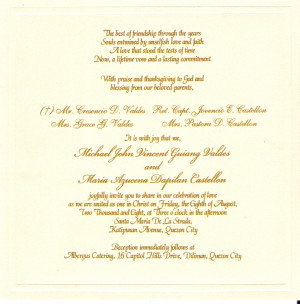 The best of friendship through the years
Souls entwined by unselfish love and faith
A love that stood the tests of time
Now, a lifetime vow and a lasting commitment
With praise and thanksgiving to God and
blessing from our beloved parents,
(†) Mr. Cresencio D. Valdes Ret. Capt. Jovencio E. Castellon
Mrs. Grace G. Valdes Mrs. Pastora D. Castellon
It is with joy that we,
Michael John Vincent Guiang Valdes
and
Maria Azucena Dapilan Castellon
joyfully invite you to share in our celebration of love
as we are united as one in Christ on Friday, the Eighth of August,
Two Thousand and Eight, at Three o'clock in the afternoon
Santa Maria De La Strada,
Katipunan Avenue, Quezon City
Reception immediately follows at
Albergus Catering, 16 Capitol Hills Drive, Diliman, Quezon City